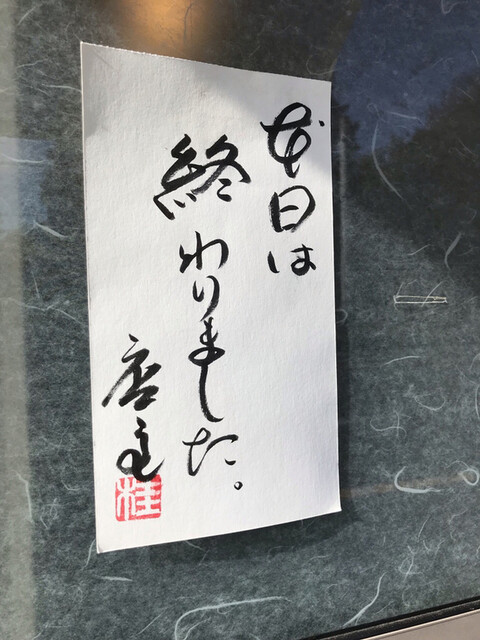 本日は
終わりました。
店主
桂